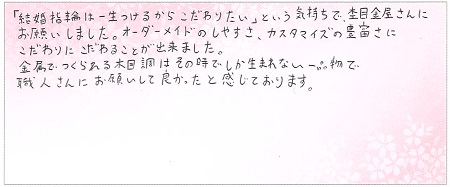 「結婚指輪は一生つけるからこだわりたい」という気持ちで、杢目金屋さんに
お願いしました。オーダーメイドのしやすさ、カスタマイズの豊富さに
こだわりにこだわることが出来ました。
金属でつくられる木目調はその時でしか生まれない一点物で
職人さんにお願いして良かったと感じております。